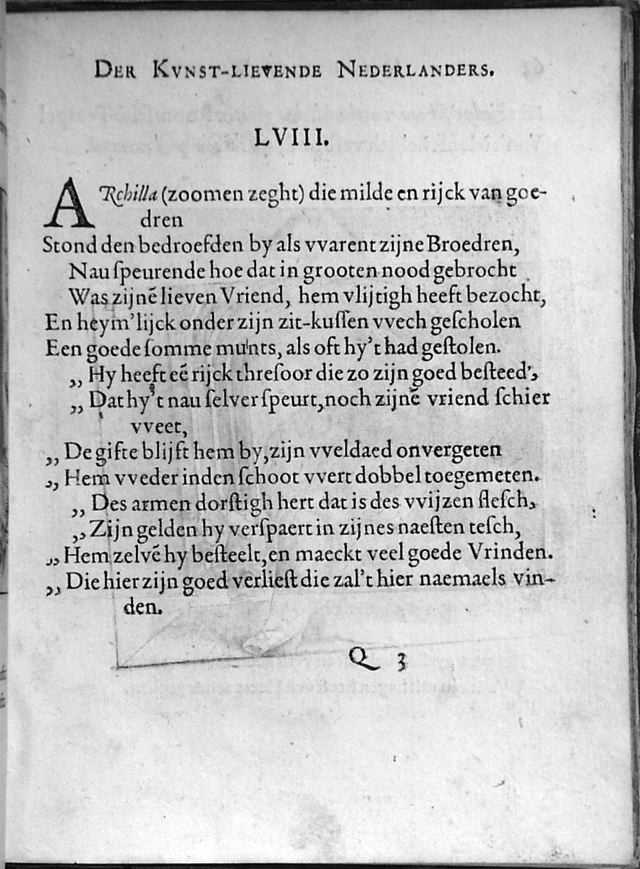 DER KVNST-LIEVENDE NEDERLANDERS.
LVIII.
ARchilla (zoomen zeght) die milde en rijck van goe-
dren
Stond den bedroefden by als vvarent zijne Broedren,
Nau ſpeurende hoe dat in grooten nood gebrocht
Was zijnē lieven Vriend, hem vlijtigh heeft bezocht,
En heym'lijck onder zijn zit-kuſſen vvech geſcholen
Een goede ſomme munts, als oft hy't had geſtolen.
,, Hy heeft eē rijck threſoor die zo zijn goed beſteed',
,, Dat hy't nau ſelver ſpeurt, noch zijnē vriend ſchier
vveet,
,, De gifte blijft hem by, zijn vveldaed onvergeten
,, Hem vveder inden ſchoot vvert dobbel toegemeten.
,, Des armen dorſtigh hert dat is des vvijzen fleſch,
,, Zijn gelden hy verſpaert in zijnes naeſten teſch,
,, Hem zelvē hy beſteelt, en maeckt veel goede Vrinden.
,, Die hier zijn goed verlieſt die zal't hier naemaels vin-
den.
Q 3